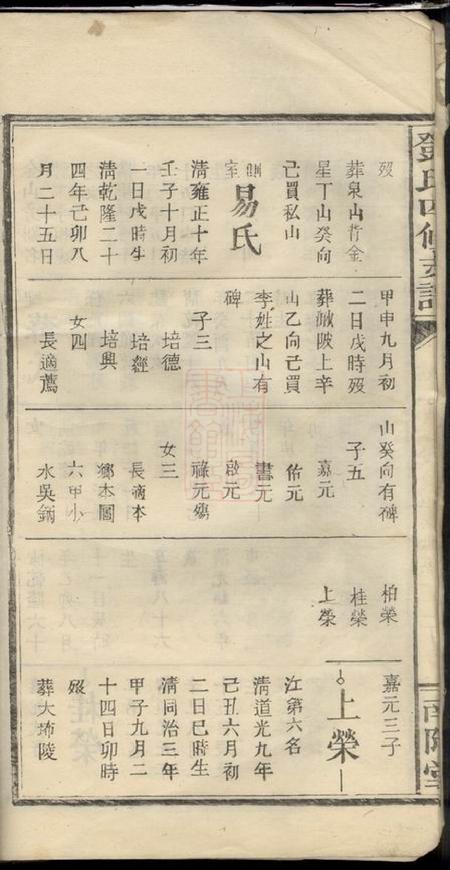 鄧氏四修支譜
南陽堂
歿
葬泉山背金
星丁山癸向
己買私山
側室
易氏
清雍正十年
壬子十月初
一日戌時生
清乾隆二十
四年己卯八
月二十五日
甲申九月初
二日戌時歿
葬城陂上辛
山乙向己買
李姓之山有
碑
子三
培德
培經
培興
女四
長適薦
山癸向有碑
子五
嘉元
佑元
書元
啟元
祿元殤
女三
長適本
鄉本圖
六甲小
水吳鈵
柏榮
桂榮
上榮
嘉元三子
上榮
江第六名
清道光九年
己丑六月初
二日巳時生
清同治三年
甲子九月二
十四日卯時
歿
葬大㘵陵